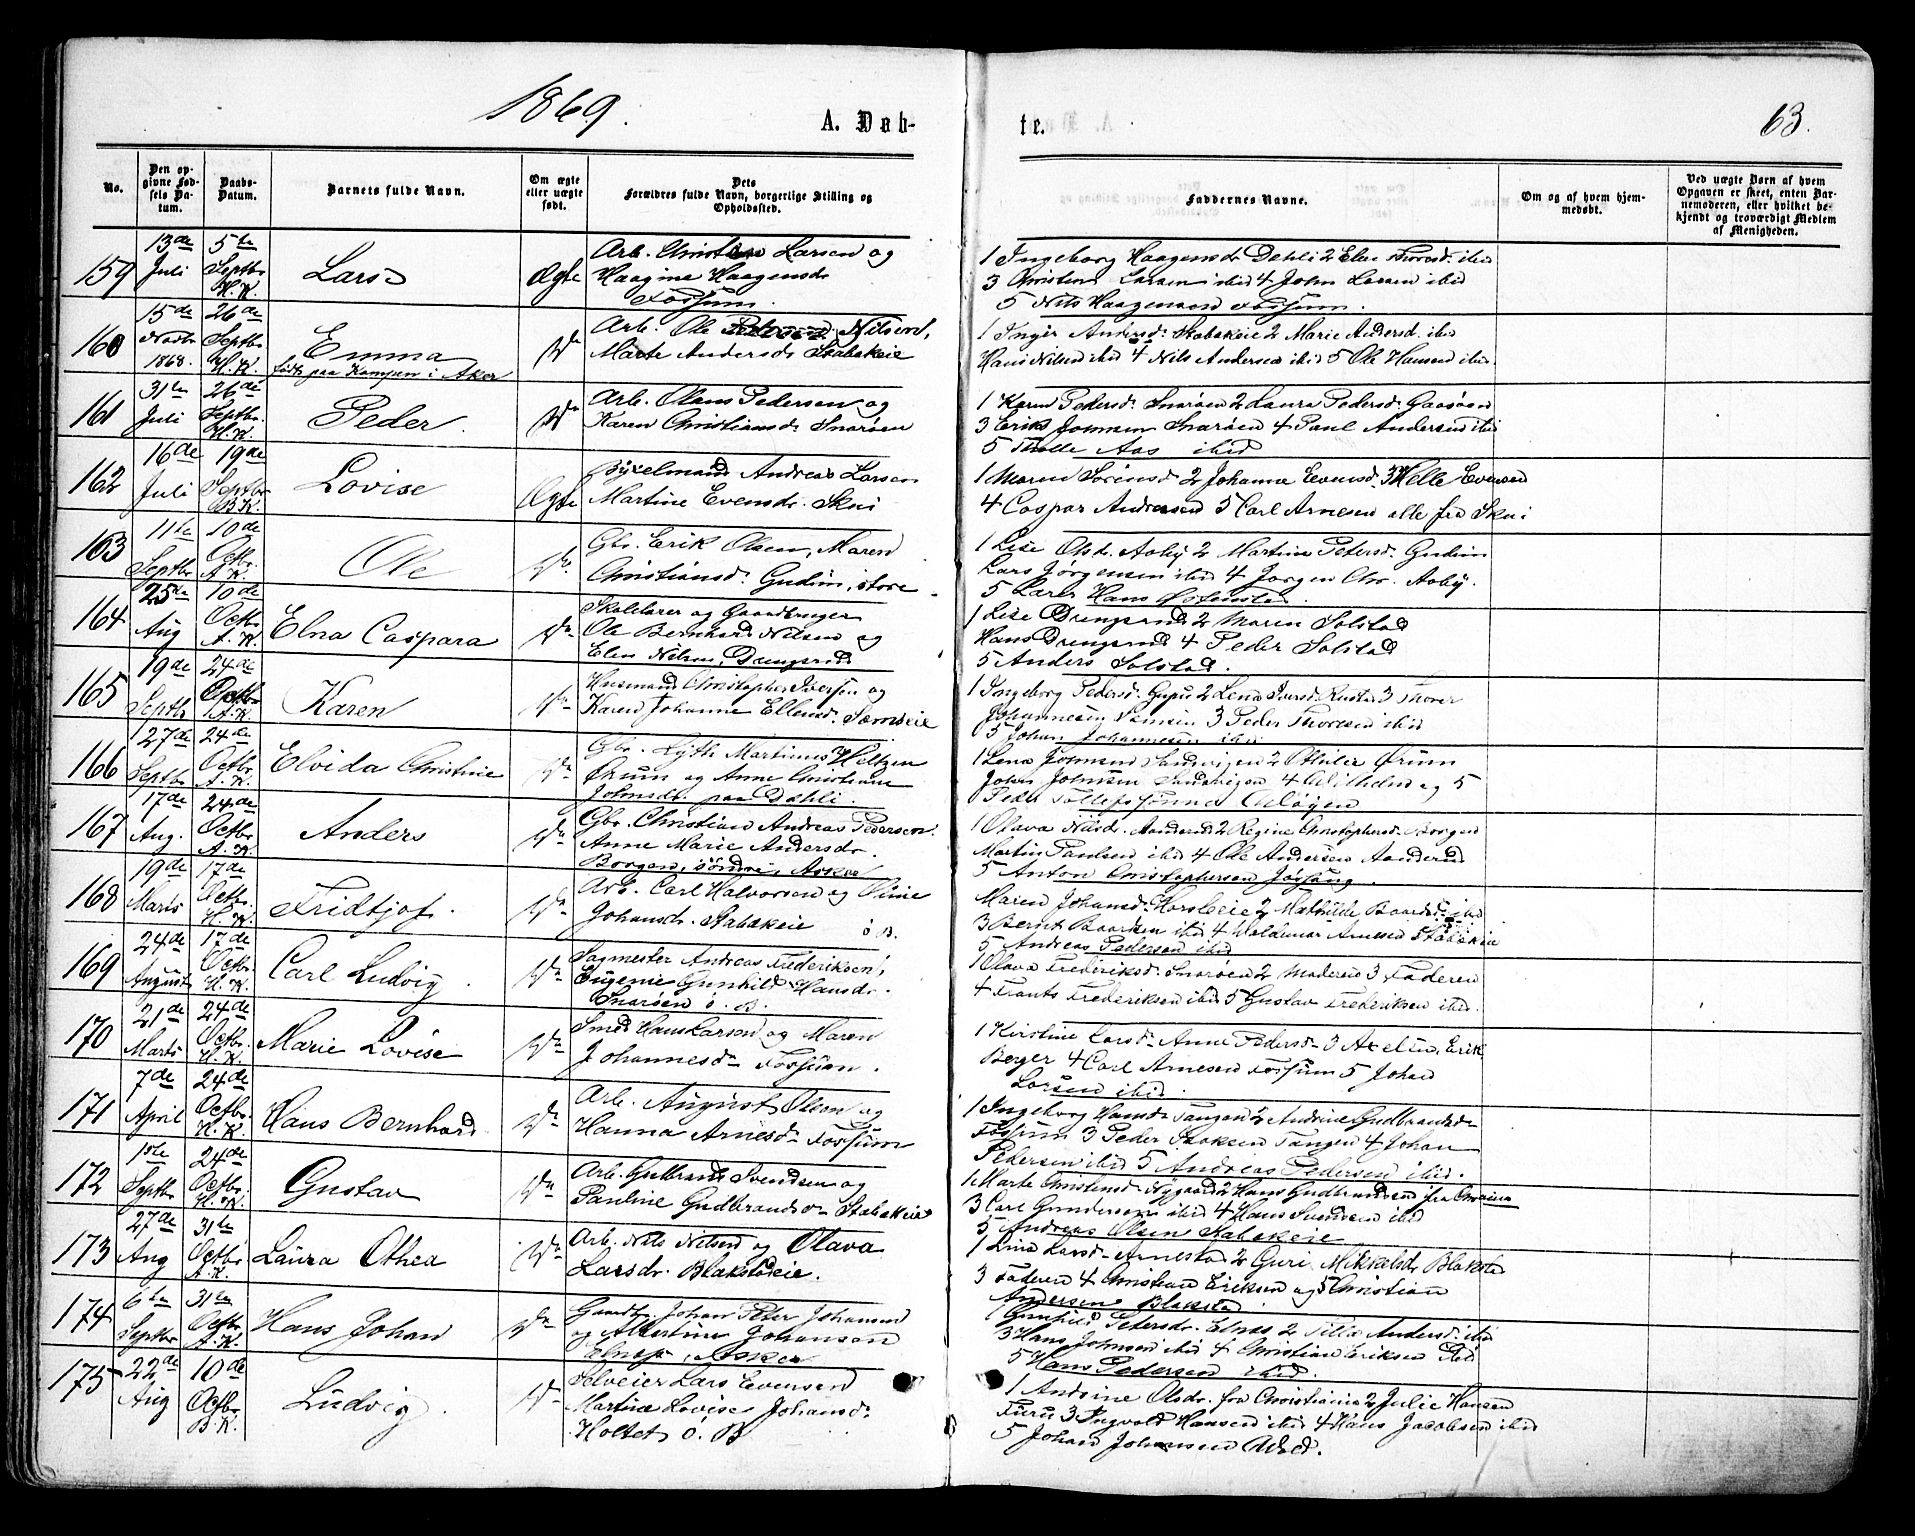 1869.
A. Døb-
te.
63.
No.
Den op-
givne Fød-
sels Da-
tum.
Daabs-
Datum.
Barnets fulde Navn.
Om ægte
eller uægte
født.
Dets
Forældres fulde Navn, borgerlige Stilling og
Opholdssted.
Faddernes Navne.
Om og af hvem hjem-
medøbt.
Ved uægte Børn af hvem
Opgaven er skeet, enten Bar-
nemoderen, eller hvilket be-
kjendt og troværdigt Medlem
af Menigheden.
159
13de
Juli
5te
Septbr
H. K.
Lars
Ægte
Arb. Christian Larsen og
Haagine Haagensdr
Fossum.
1 Ingeborg Haagensdr Dehli 2 Else ibid
3 Christian Larsen ibid 4 John Larsen ibid
5 Nils Haagensen Fossum.
160
15de
Novbr
1868.
26de
Septbr
H. K.
Emma
født paa Kampen i Aker
Do
Arb. Ole Nilsen,
Marte Andersdr Stabækeie
1 Inger Andersdr Stabækeie 2 Marie Andersd. ibid
Hans Nilsen ibid 4 Nils Andersen ibid 5 Ole Hansen ibid
161
31te
Juli
26de
Septbr.
H. K.
Peder
Do
Arb. Olaus Pedersen og
Karen Christiansdr Snarøen
1 Karen Pedersdr Snarøen 2 Laura Pedersdr Gaasøen
3 Erik Johnsen Snarøen 4 Paul Andersen ibid
5 Aas ibid
162
16de
Juli
19de
Septbr
B K.
Lovise
Ægte
Bÿxelmand Andreas Larsen
Martine Evensdr. Skui
1 Maren Sørensdr 2 Johanne Evensd. 3 Helle Evensen
4 Caspar Andersen 5 Carl Arnesen alle fra Skui
163
11te
Septbr
10de
Octbr.
A. K.
Ole
Do
Gbr. Erik Olsen, Maren
Christiansd. Gudim, store
1 Lise Olsd. Aaby 2 Martine Petersd. Gudim
Lars Jørgensen ibid 4 Jørgen Chr. Aaby.
5 Hans Østenstad.
164
25de
Aug
10de
Octbr
A. K.
Elna Caspara
Do
Skolelærer og Gaardbruger
Ole Bernhard Nilsen og
Elen Nilsen, Drengsrud
1 Lise Drengsrud 2 Maren Solstad
Hans Drengsrud 4 Peder Solstad
5 Anders Solstad.
165
19de
Septbr
24de
Octbr
A. K.
Karen
Do
Husmand Christopher Iversen og
Karen Johanne Ellensd. Semseie
1 Ingeborg Pedersd. 2 Lena Iversd. Rustad 3 Thorer
Johannesen 3 Peder Thoresen ibid
5 Johan Johannesen ibid
166
27de
Septbr
24de
Octbr
A. K.
Elvida Christine
Do
Gbr. Lyth Martinus Heltzen
Ørum og Anne Christiane
Johnsdr. paa Dahli.
1 Lena Johnsen Sandvigen 2 Othilie Ørum
John Johnsen Sandvigen 4 og 5
Peder
167
17de
Aug.
24de
Octbr
A. K.
Anders
Do
Gbr. Christian Andreas Pedersen
Anne Marie Andersdr.
Borgen, søndre, Asker
1 Olava Nilsdr. Aanderud 2 Regine Christophersdr Borgen
Martin Paulsen ibid 4 Ole Andersen Aanderud
5 Anton Christophersen
168
19de
Marts
17de
Octbr.
H. K.
Fridtjof.
Do
Arb. Carl Halvorsen og Oline
Johansdr. Stabækeie ø. B.
Maren Johansd. 2 Mathilde Baardsd. ibid
3 Bernt Baardsen ibid 4 Waldemar Arnesen Stabækeie
5 Andreas Pedersen ibid
169
24de
August
17de
Octbr.
H. K.
Carl Ludvig.
Do
Sagmester Andreas Frederiksen,
Eugenie Gunhild Hansdr.
Snarøen ø. B.
1 Olava Frederiksd. Snarøen 2 Moderen 3 Faderen
4 Frants Frederiksen ibid 5 Gustav Frederiksen ibid.
170
21de
Marts
24de
Octbr
H. K.
Marie Lovise
Do
Smed Hans Larsen og Maren
Johannesdr Fossum.
1 Kirstine Larsdr Anne Pedersdr 3 Axelsen, Erik
Berger 4 Carl Arnesen Fossum 5 Johan
Larsen ibid.
171
7de
April
24de
Octbr.
H. K.
Hans Bernhard
Do
Arb. August Olsen og
Hanna Arnesdr Fossum
1 Ingeborg Hansdr Tangen 2 Andrine Gudbrandsdr
Fossum 3 Peder Tangen 4 Johan
Pedersen ibid 5 Andreas Pedersen ibid.
172
1ste
Septbr
24de
Octbr.
H. K.
Gustav
Do
Arb. Gulbrand Svendsen og
Pauline Gudbrandsdr Stabækeie
1 Marte Christensdr Nygaard 2 Hans Gudbrandsen fra Christiania
3 Carl Gundersen ibid 4 Hans Svendsen ibid
5 Andreas Olsen Stabækeie
173
27de
Aug
31te
Octbr
A. K.
Laura Othea
Do
Arb. Nils Nilsen og Olava
Larsdr. Blakstadeie.
1 Lina Larsdr Arnestad 2 Guri Mikkelsdr Blakstad
3 Faderen 4 Christian Eriksen og 5 Christian
Andersen Blakstad
174
6te
Septbr
31te
Octbr
A. K.
Hans Johan
Do
Gaardbr. Johan Peter Johansen
og Albertine Johansen
Elnes, Asker
1 Gunhild Petersdr. Elnes 2 Andersd. ibid
3 Hans Johnsen ibid 4 Christian Eriksen ibid
5 Hans Pedersen ibid.
175
22de
Aug
10de
Octbr
B K.
Ludvig
Do
Selveier Lars Evensen
Martine Lovise Johansd.
Holtet ø. B
1 Andrine Olsdr. fra Christiania 2 Julie Hansen
Furu 3 Ingvald Hansen ibid 4 Hans Jacobsen ibid
5 Johan Johansen